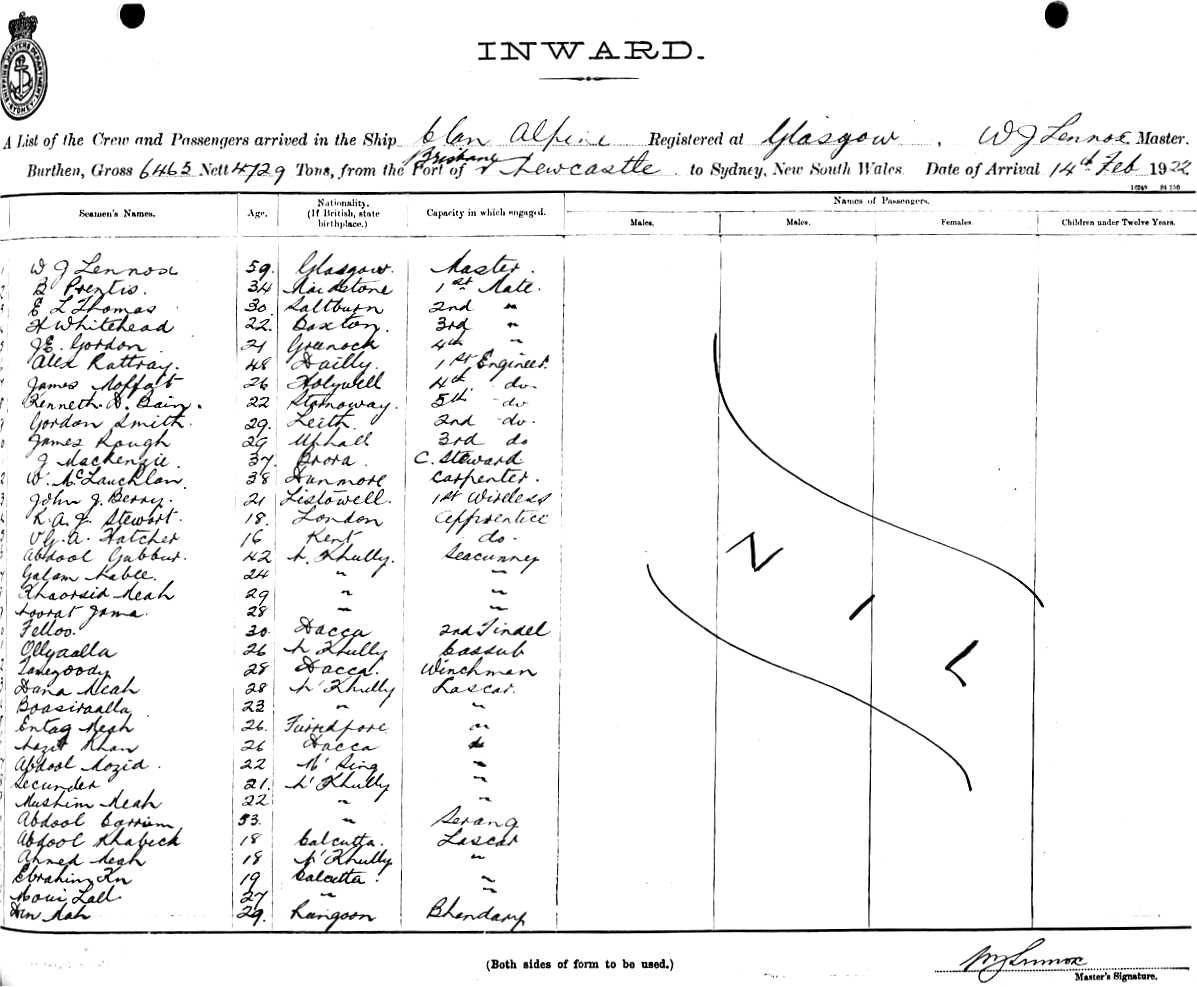 SHIPPING MASTERS DEPARTMENT SYDNEY
INWARD.
A List of the Crew and Passengers arrived in the Ship Clan Alpine Registered at Glasgow, W J Lennox Master.
Brisbane
Burthen, Gross 6463 Nett 4729 Tons, from the Port of Newcastle to Sydney, New South Wales. Date of Arrival 14th Feb 1922
Seamen's Names. Age. Nationality. (If British, state birthplace.) Capacity in which engaged. Names of Passengers.
Males. Males. Females. Children under Twelve Years.
W J Lennox 59. Glasgow. Master.
B Prentis. 34 Maidstone 1st Mate.
E L Thomas 30. Saltburn 2nd "
H Whitehead 22. Buxton. 3rd "
J.E. Gordon 21 Greenock 4th "
Alex Rattray. 48 Dailly. 1st Engineer.
James Moffatt 26 Holywell 4th do.
Kenneth D. Bain. 22 Stornoway. 5th do
Gordon Smith. 29. Leith. 2nd do.
James Rough 29 Uphall 3rd do
J Mackenzie. 37. Brora. C. Steward
W. McLauchlan. 38 Dunmore Carpenter.
John J. Berry. 21 Listowell. 1st Wireless
R. A. J. Stewart. 18. London Apprentice
V G. A. Hatcher 16 Kent do.
Abdool Gubbur. 42 N. Khully. Seacunney
Golam Nabee. 24 " "
Khaorsid Meah 29 " "
Noorat Jama. 28 " "
Felloo. 30. Dacca 2nd Tindel
Ollyaalla 26 N Khully Cassub
28 Dacca. Winchman
Dana Meah 28 N'Khully Lascar.
Boasiraalla 23 " "
Entag Meah 26. Furredpore "
Khan 26 Dacca
Abdool Mozid. 22 M'Sing "
Secunder 21. N'Khully "
Mushim Meah 22 " "
Abdool Carriem 53. " Serang
Abdool Khabeck 18 Calcutta. Lascar
Ahmed Meah 18 N'Khully "
Ebrahim Kn 19 Calcutta. "
Lall 27 " "
29. Rangoon Bhandary
N
I
L
(Both sides of form to be used.)
W J Lennox
Master's Signature.